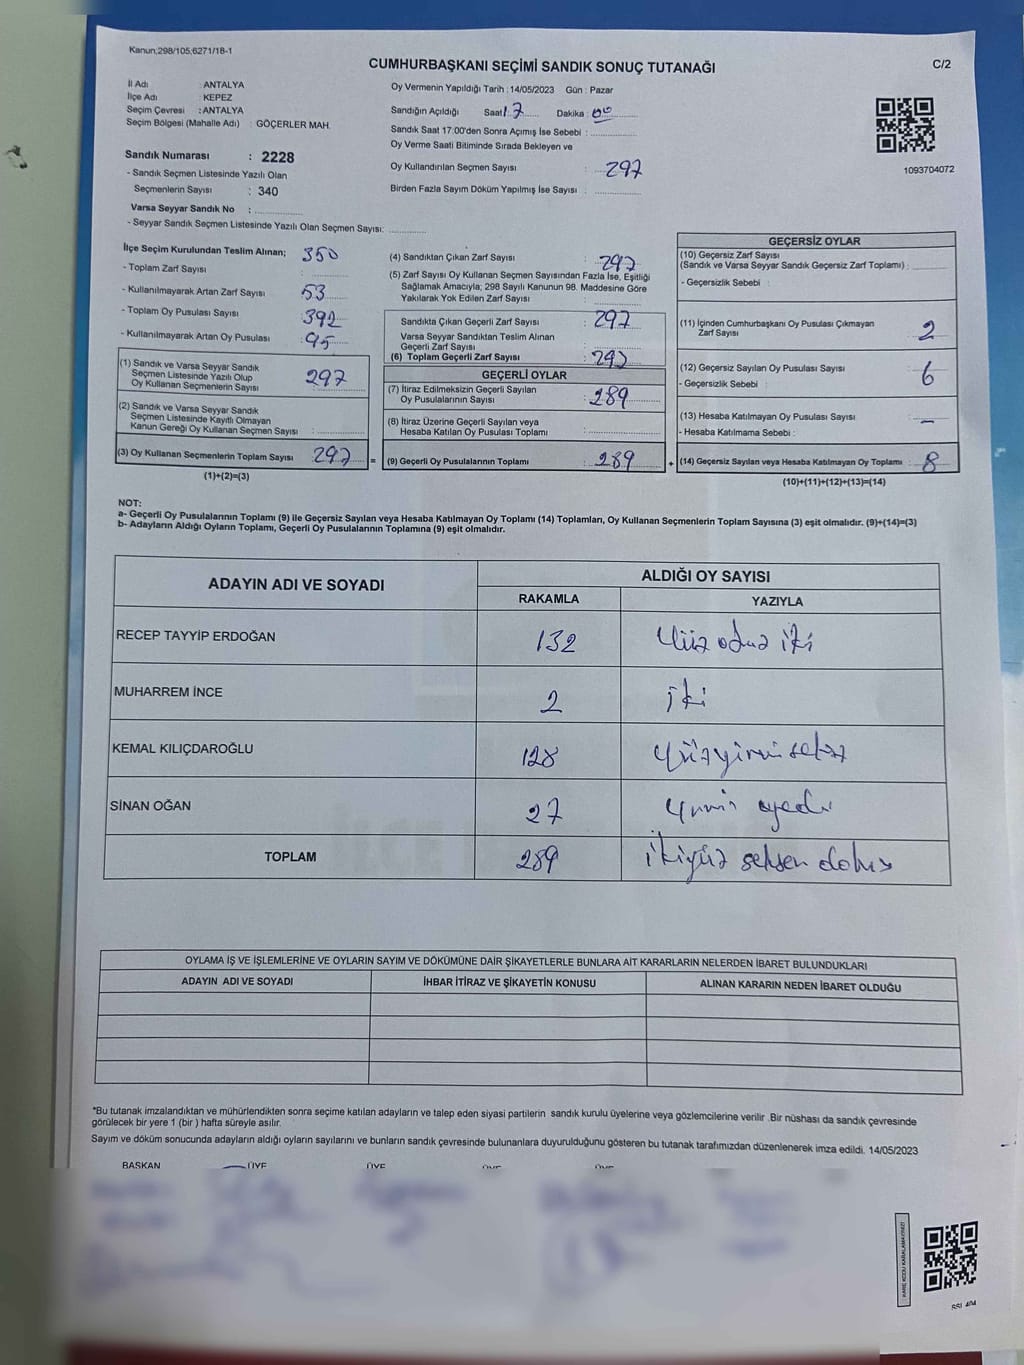 Kanun,298/105,6271/18-1
CUMHURBAŞKANI SEÇİMİ SANDIK SONUÇ TUTANAĞI
C/2
İl Adı : ANTALYA
İlçe Adı : KEPEZ
Seçim Çevresi : ANTALYA
Seçim Bölgesi (Mahalle Adı) : GÖÇERLER MAH.
Sandık Numarası : 2228
- Sandık Seçmen Listesinde Yazılı Olan
Seçmenlerin Sayısı : 340
Varsa Seyyar Sandık No :
- Seyyar Sandık Seçmen Listesinde Yazılı Olan Seçmen Sayısı:
Oy Vermenin Yapıldığı Tarih : 14/05/2023 Gün : Pazar
Sandığın Açıldığı Saat 17 Dakika : 00
Sandık Saat 17:00'den Sonra Açımış İse Sebebi :
Oy Verme Saati Bitiminde Sırada Bekleyen ve
Oy Kullandırılan Seçmen Sayısı : 297
Birden Fazla Sayım Döküm Yapılmış İse Sayısı :
1093704072
İlçe Seçim Kurulundan Teslim Alınan; 350
- Toplam Zarf Sayısı :
- Kullanılmayarak Artan Zarf Sayısı 53
- Toplam Oy Pusulası Sayısı 392
- Kullanılmayarak Artan Oy Pusulası : 95
(1) Sandık ve Varsa Seyyar Sandık
Seçmen Listesinde Yazılı Olup
Oy Kullanan Seçmenlerin Sayısı 297
(2) Sandık ve Varsa Seyyar Sandık
Seçmen Listesinde Kayıtlı Olmayan
Kanun Gereği Oy Kullanan Seçmen Sayısı :
(3) Oy Kullanan Seçmenlerin Toplam Sayısı 297 =
(1)+(2)=(3)
(4) Sandıktan Çıkan Zarf Sayısı : 297
(5) Zarf Sayısı Oy Kullanan Seçmen Sayısından Fazla İse, Eşitliği
Sağlamak Amacıyla; 298 Sayılı Kanunun 98. Maddesine Göre
Yakılarak Yok Edilen Zarf Sayısı :
Sandıkta Çıkan Geçerli Zarf Sayısı : 297
Varsa Seyyar Sandıktan Teslim Alınan
Geçerli Zarf Sayısı
(6) Toplam Geçerli Zarf Sayısı : 297
GEÇERLİ OYLAR
(7) İtiraz Edilmeksizin Geçerli Sayılan
Oy Pusulalarının Sayısı : 289
(8) İtiraz Üzerine Geçerli Sayılan veya
Hesaba Katılan Oy Pusulası Toplamı :
(9) Geçerli Oy Pusulalarının Toplamı : 289 +
GEÇERSİZ OYLAR
(10) Geçersiz Zarf Sayısı
(Sandık ve Varsa Seyyar Sandık Geçersiz Zarf Toplamı) :
- Geçersizlik Sebebi :
(11) İçinden Cumhurbaşkanı Oy Pusulası Çıkmayan
Zarf Sayısı : 2
(12) Geçersiz Sayılan Oy Pusulası Sayısı : 6
- Geçersizlik Sebebi :
(13) Hesaba Katılmayan Oy Pusulası Sayısı : -
- Hesaba Katılmama Sebebi :
(14) Geçersiz Sayılan veya Hesaba Katılmayan Oy Toplamı : 8
(10)+(11)+(12)+(13)=(14)
NOT:
a- Geçerli Oy Pusulalarının Toplamı (9) ile Geçersiz Sayılan veya Hesaba Katılmayan Oy Toplamı (14) Toplamları, Oy Kullanan Seçmenlerin Toplam Sayısına (3) eşit olmalıdır. (9)+(14)=(3)
b- Adayların Aldığı Oyların Toplamı, Geçerli Oy Pusulalarının Toplamına (9) eşit olmalıdır.
ADAYIN ADI VE SOYADI
ALDIĞI OY SAYISI
RAKAMLA YAZIYLA
RECEP TAYYİP ERDOĞAN 132 Yüz otuz iki
MUHARREM İNCE 2 iki
KEMAL KILIÇDAROĞLU 128 Yüzyirmi sekiz
SİNAN OĞAN 27 Yirmi yedi
TOPLAM 289 ikiyüz seksen dokuz
OYLAMA İŞ VE İŞLEMLERİNE VE OYLARIN SAYIM VE DÖKÜMÜNE DAİR ŞİKAYETLERLE BUNLARA AİT KARARLARIN NELERDEN İBARET BULUNDUKLARI
ADAYIN ADI VE SOYADI İHBAR İTİRAZ VE ŞİKAYETİN KONUSU ALINAN KARARIN NEDEN İBARET OLDUĞU
*Bu tutanak imzalandıktan ve mühürlendikten sonra seçime katılan adayların ve talep eden siyasi partilerin sandık kurulu üyelerine veya gözlemcilerine verilir .Bir nüshası da sandık çevresinde
görülecek bir yere 1 (bir ) hafta süreyle asılır.
Sayım ve döküm sonucunda adayların aldığı oyların sayılarını ve bunların sandık çevresinde bulunanlara duyurulduğunu gösteren bu tutanak tarafımızdan düzenlenerek imza edildi. 14/05/2023
BAŞKAN ÜYE ÜYE ÜYE ÜYE
KARE KODU KARALAMAYINIZ!